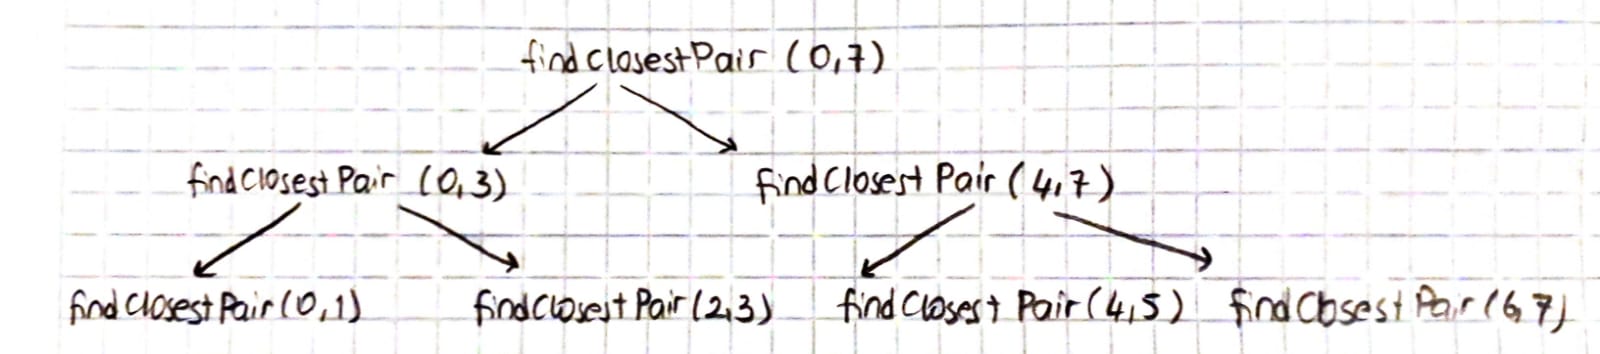 findClosestPair (0,7)
findClosestPair (0,3) findClosestPair (4,7)
findClosestPair (0,1) findClosestPair (2,3) findClosestPair (4,5) findClosestPair (6,7)